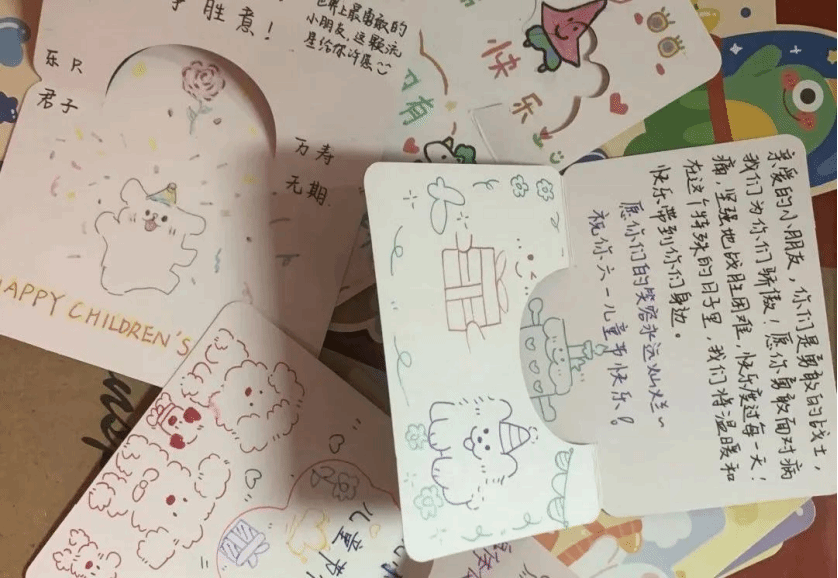 胜意！
世界上最勇敢的
小朋友，这颗流
是给你许愿
乐只
君子
万寿
无期
HAPPY CHILDREN'S
快乐
有
亲爱的小朋友，你们是勇敢的战士，
我们为你们骄傲！愿你勇敢面对病
痛，坚强地战胜困难，快乐度过每一天！
在这个特殊的日子里，我们将温暖和
快乐带到你们身边。
愿你们的笑容永远灿烂~
祝你六一儿童节快乐！
儿童节